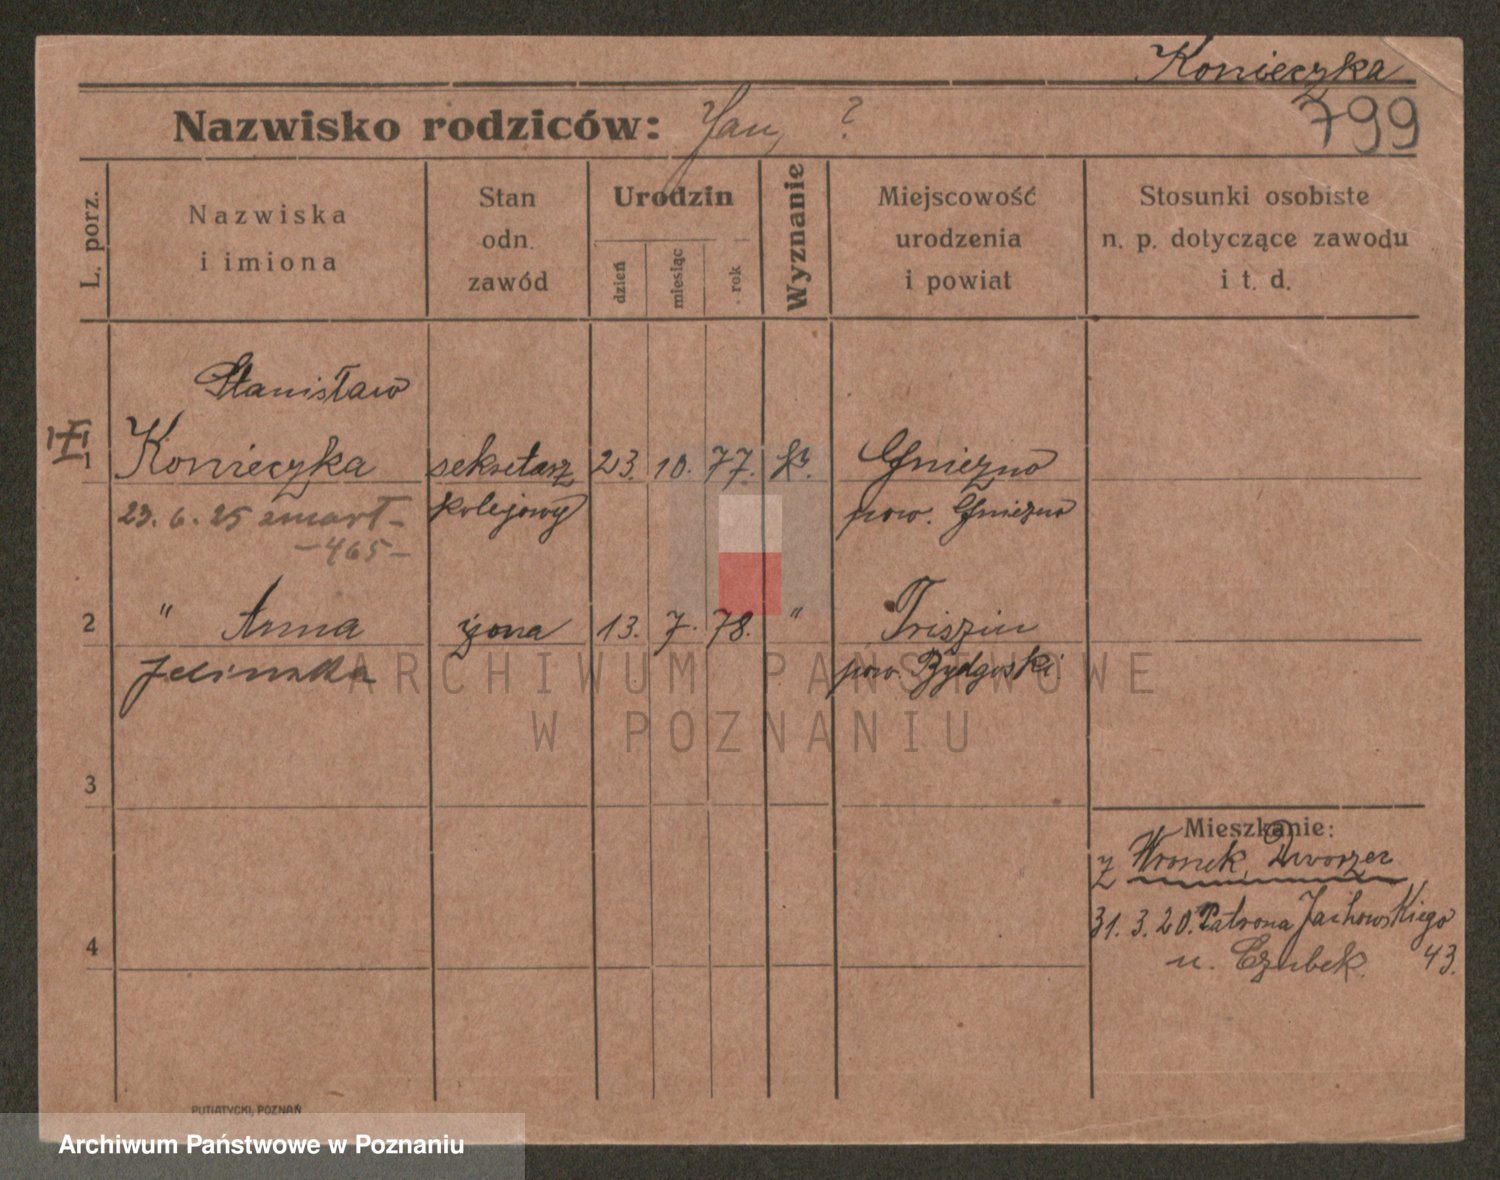 Konieczka
799
Nazwisko rodziców: Jan, ?
L. porz.
Nazwiska
i imiona
Stan
odn.
zawód
Urodzin
dzień
miesiąc
rok
Wyznanie
Miejscowość
urodzenia
i powiat
Stosunki osobiste
n. p. dotyczące zawodu
i t. d.
Stanisław
1 Konieczka sekretarz 23. 10. 77. k. Gniezno
23. 6. 25 zmarł - kolejowy pow. Gniezno
- 465 -
2 " Anna żona 13. 7. 78. " Triszin
pow. Bydgoski
ARCHIWUM PAŃSTWOWE
W POZNANIU
3
Mieszkanie:
z Wronek, Dworzec
31. 3. 20. Patrona Jackowskiego
4 u. Czubek 43.
PUTIATYCKI, POZNAŃ
Archiwum Państwowe w Poznaniu